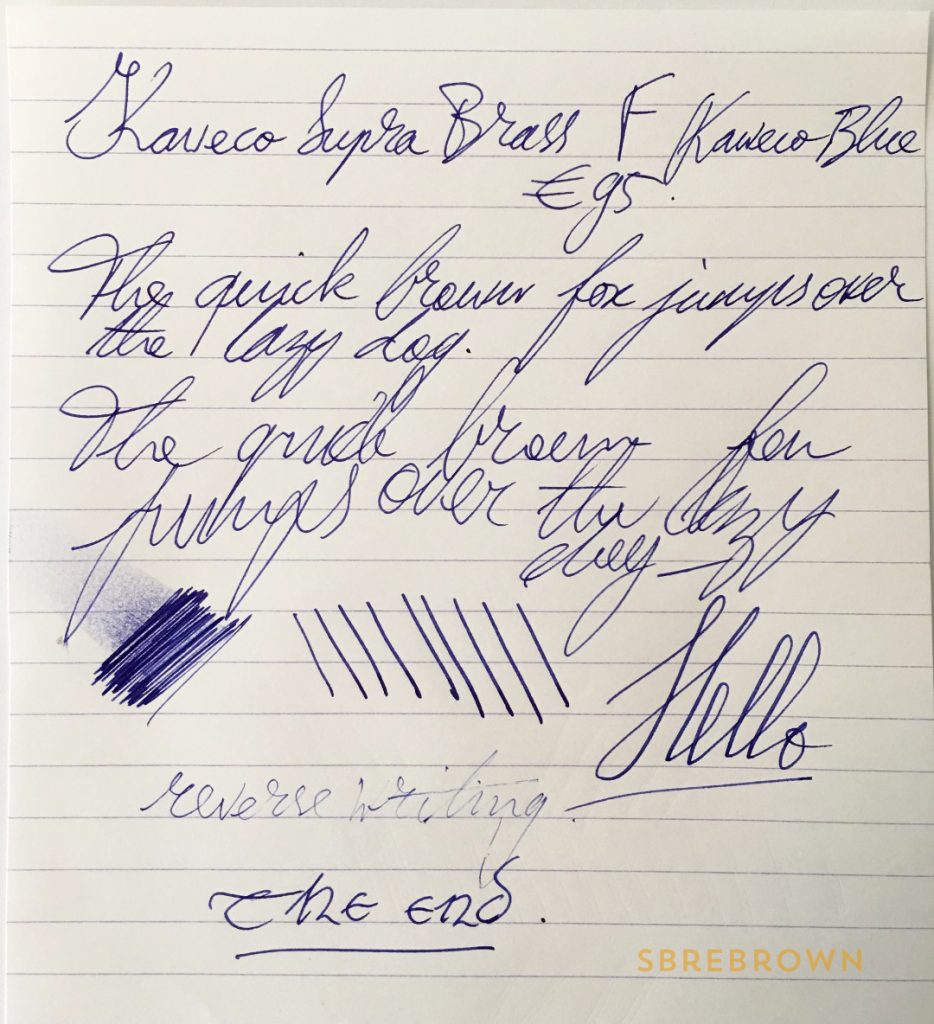 Kaweco Supra Brass F Kaweco Blue
€95.
The quick brown fox jumps over
the lazy dog.
The quick brown fox
jumps over the lazy
dog
Hello
reverse writing.
The end.
SBREBROWN